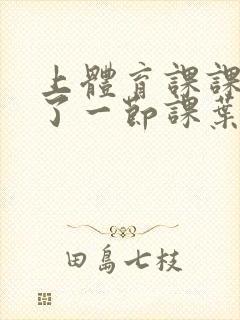 上體育課課
了一節課葉
田島七枝